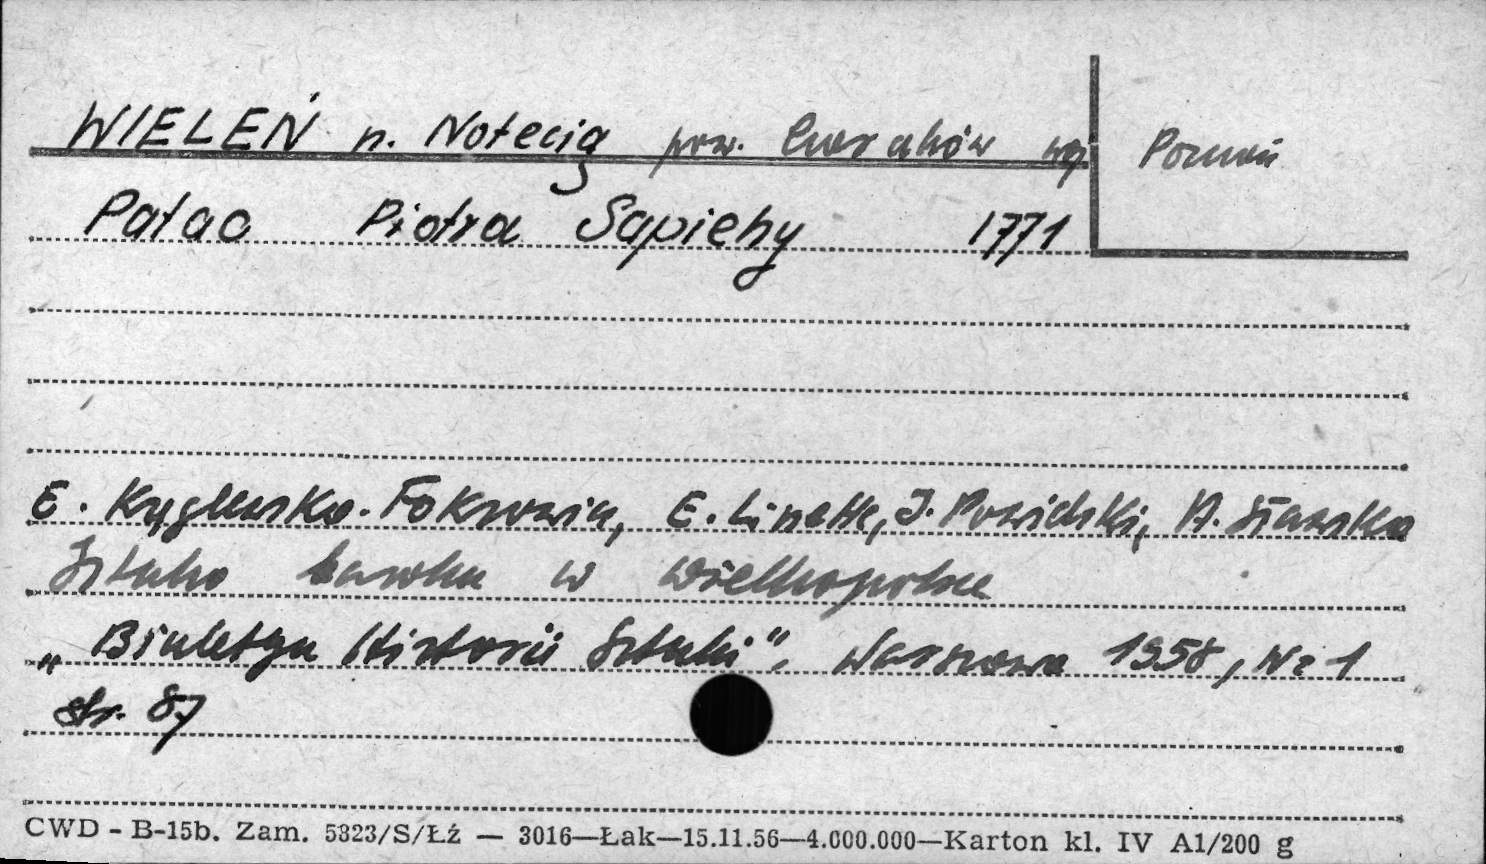 WIELEŃ n. Notecią pow. Czarnków woj. Poznań
Pałac Piotra Sapiehy 1771
E. Linette, J. Powidzki, A. Sławska
Sztuka baroku w Wielkopolsce
„Biuletyn Historii Sztuki”, Warszawa 1958, Nr 1
str. 87
CWD - B-15b. Zam. 5323/S/Łź — 3016—Łak—15.11.56—4.000.000—Karton kl. IV A1/200 g